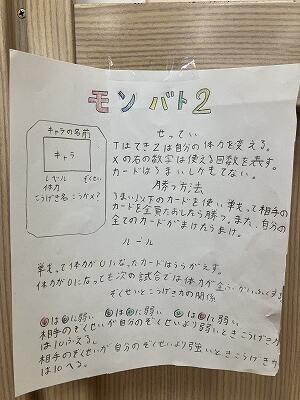 モンバト2
キャラの名前
キャラ
レベル ぞくせい
体力
こうげき名 こうかX?
せってい
Tはてき Zは自分の体力を変える。
Xの右の数字は使える回数を表す。
カードは5まいしかもてない。
勝つ方法
5まい以下のカードを使い戦って相手の
カードを全員たおしたら勝つ。また、自分の
全てのカードがまけたら負け。
ルール
戦って体力が0になったカードはうらがえす。
体力が0になっても次の試合では体力が全ぶかいふくする。
ぞくせいとこうげき力の関係
は に弱い は に弱い は に弱い。
相手のぞくせいが自分のぞくせいより弱いときこうげき力
は10ふえる。
相手のぞくせいが自分のぞくせいより強いときこうげき力
は10へる。